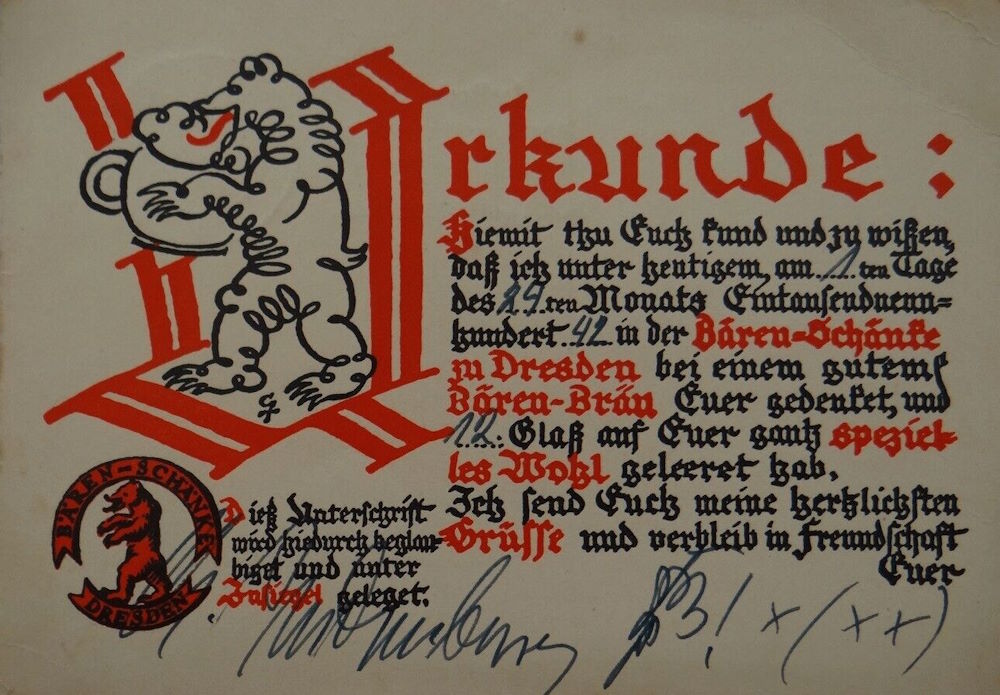 Urkunde:
Hiemit thu Euch kund und zu wißen,
daß ich unter heutigem, am 1. ten Tage
des 29. ten Monats Eintausendneun=
hundert 42 in der Bären=Schänke
zu Dresden bei einem gutem
Bären-Bräu Euer gedenket, und
12. Glaß auf Euer gantz speziel-
les Wohl geleeret hab.
Ich send Euch meine hertzlichsten
Grüsse und verbleib in Freundschaft
Euer
Dieß Unterschrift
wird hiedurch beglau-
biget und unter
Zusiegel geleget.
BÄREN-SCHÄNKE
DRESDEN
! x (xx)